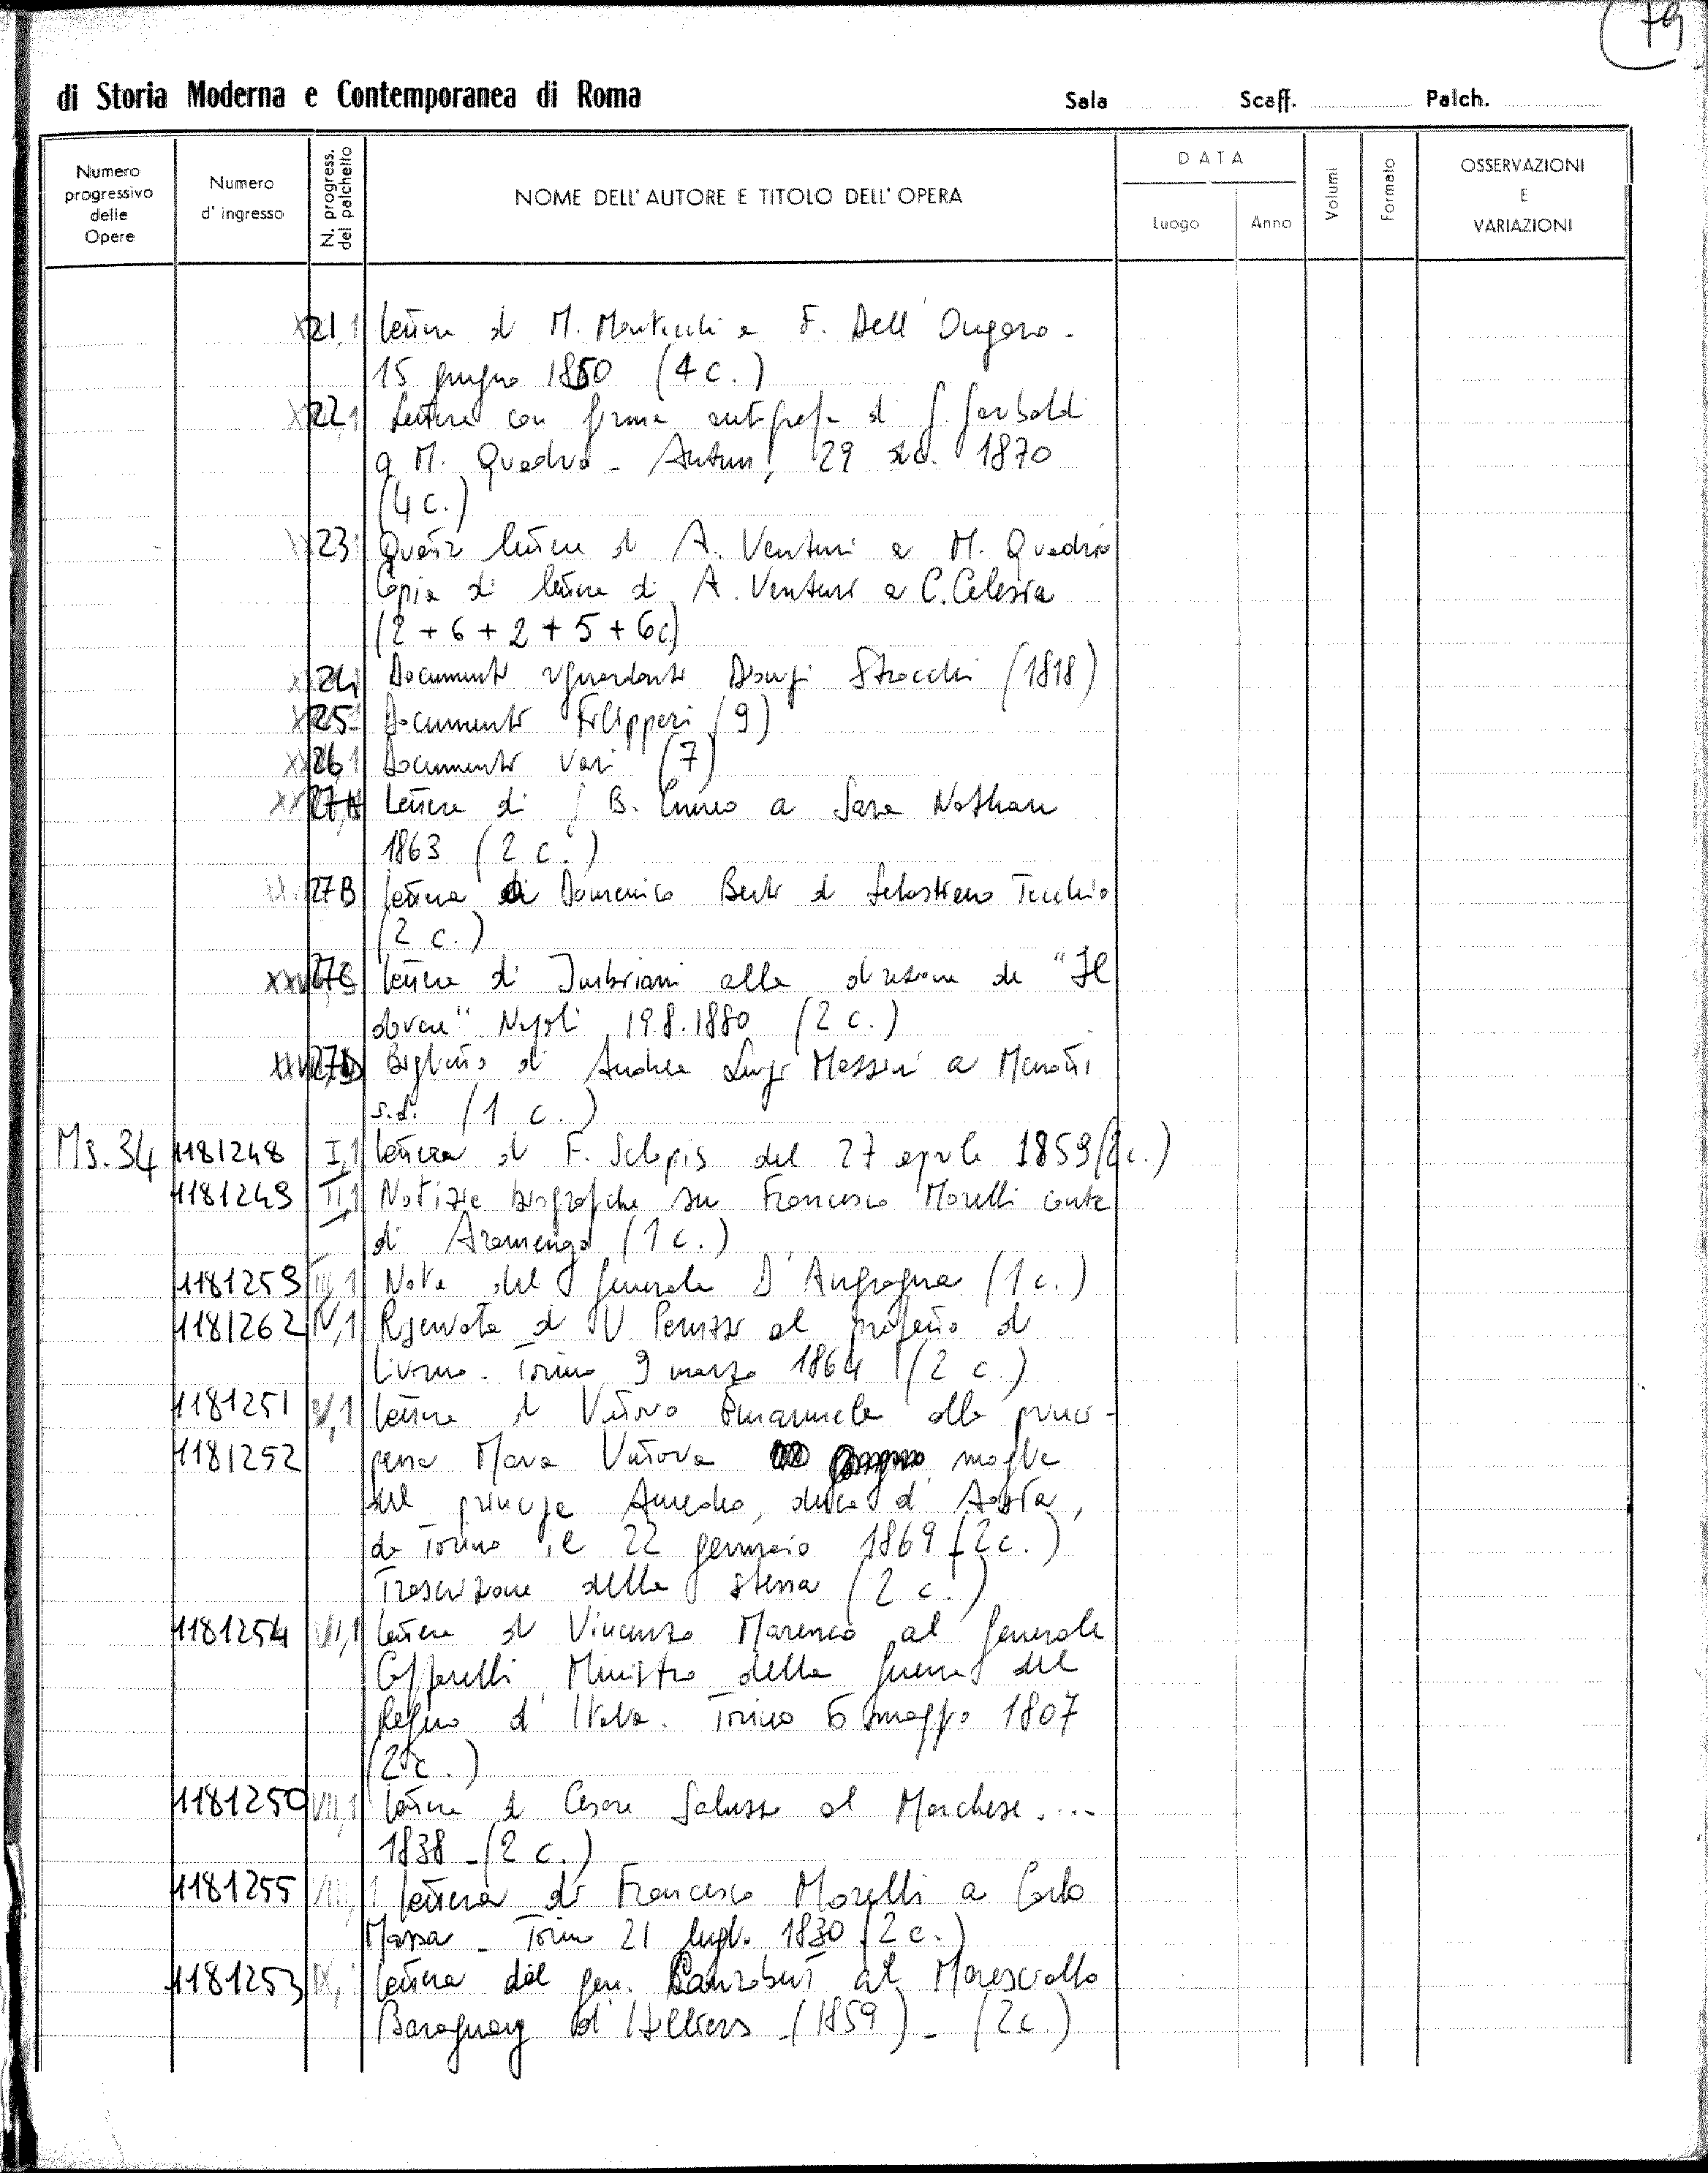 79
di Storia Moderna e Contemporanea di Roma Sala Scaff. Palch.
Numero progressivo delle Opere
Numero d'ingresso
N. progress. del palchetto
NOME DELL'AUTORE E TITOLO DELL'OPERA
DATA
Luogo
Anno
Volumi
Formato
OSSERVAZIONI E VARIAZIONI
21,1 lettera di M. Montecchi a F. Dell'Ongaro -
15 giugno 1850 (4 c.)
22,1 Lettera con firma autografa di G. Garibaldi
a M. Quadrio - Autun, 29 1870
(4 c.)
23 Quattro lettere di A. Venturi a M. Quadrio
Copia di lettera di A. Venturi a C. Celesia
(2 + 6 + 2 + 5 + 6c)
24 Documenti riguardanti Dionigi Strocchi (1818)
25 Documenti Filipperi (9)
26,1 Documenti vari (7)
27A Lettera di G B. Cuneo a Sara Nathan
1863 (2 c.)
27B lettera di Domenico Berti di Sebastiano Tecchio
(2 c.)
27C lettera di Imbriani alla direzione de "Il
dovere" Napoli 19.8.1880 (2 c.)
27D Biglietto di Andrea Luigi Mazzini a Menotti
s.d. (1 c.)
Ms. 34 1181248 I,1 lettera di F. Sclopis del 27 aprile 1859 (2 c.)
1181249 II,1 Notizie biografiche su Francesco Morelli conte
di Aramengo (1 c.)
1181259 III,1 Nota del generale D'Angrogna (1 c.)
1181262 IV,1 Riservata di U Peruzzi al prefetto di
Livorno. Torino 9 marzo 1864 (2 c.)
1181251 V,1 lettera di Vittorio Emanuele alla princi-
1181252 pessa Maria Vittoria moglie
del principe Amedeo, duca d'Aosta,
da Torino il 22 gennaio 1869 (2 c.)
Trascrizione della stessa (2 c.)
1181254 VI,1 lettera di Vincenzo Marenco al Generale
Caffarelli Ministro della Guerra del
Regno d'Italia. Torino 6 maggio 1807
(2 c.)
1181250 VII,1 lettera di Cesare Saluzzo al Marchese....
1838 - (2 c.)
1181255 VIII,1 lettera di Francesco Morelli a Carlo
Massa - Torino 21 luglio 1830 (2 c.)
1181253 IX, lettera del gen. Canrobert al Maresciallo
Baraguay d'Hilliers - (1859) - (2 c.)